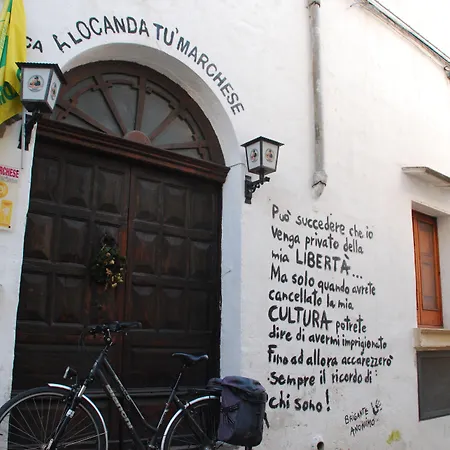 CA A LOCANDA TU' MARCHESE
MARCHESE
Può succedere che io
venga privato della
mia LIBERTÀ...
Ma solo quando avrete
cancellato la mia
CULTURA potrete
dire di avermi imprigionato
Fino ad allora accarezzerò
sempre il ricordo di
chi sono!
BRIGANTE
ANONIMO